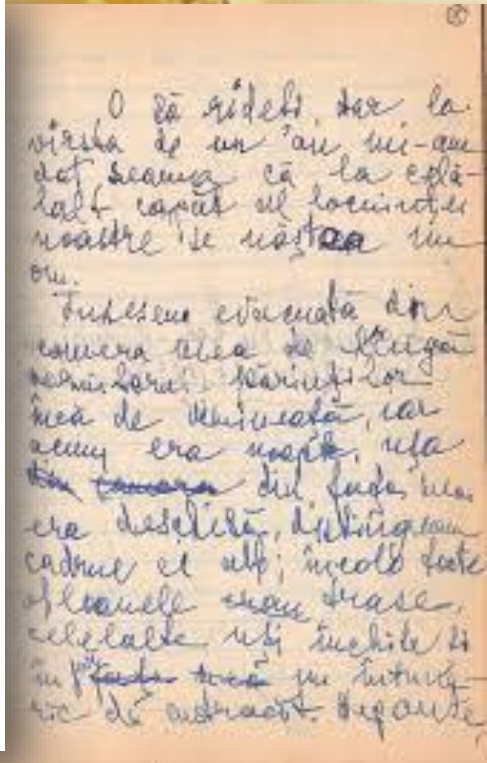 O să rîdeți, dar la
vîrsta de un an mi-am
dat seama că la celă-
lalt capăt al locuinței
noastre se năștea un
om.
Fusesem evacuată din
camera mea de lîngă
dormitorul părinților
încă de dimineață, iar
acum era noapte, ușa
din camera din fața mea
era deschisă, distingeam
cadrul ei alb; încolo toate
obloanele erau trase,
celelalte uși închise și
în fața mea un întune-
ric de antracit.